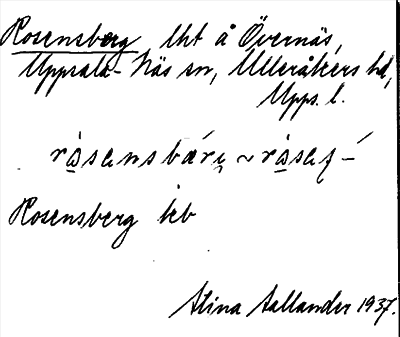 Rosensberg lht å Övernäs,
Uppsala-Näs sn, Ulleråkers hd,
Upps. l.
råsensbærj ~ råsaʃ-
Rosensberg
Stina Sallander 1937.